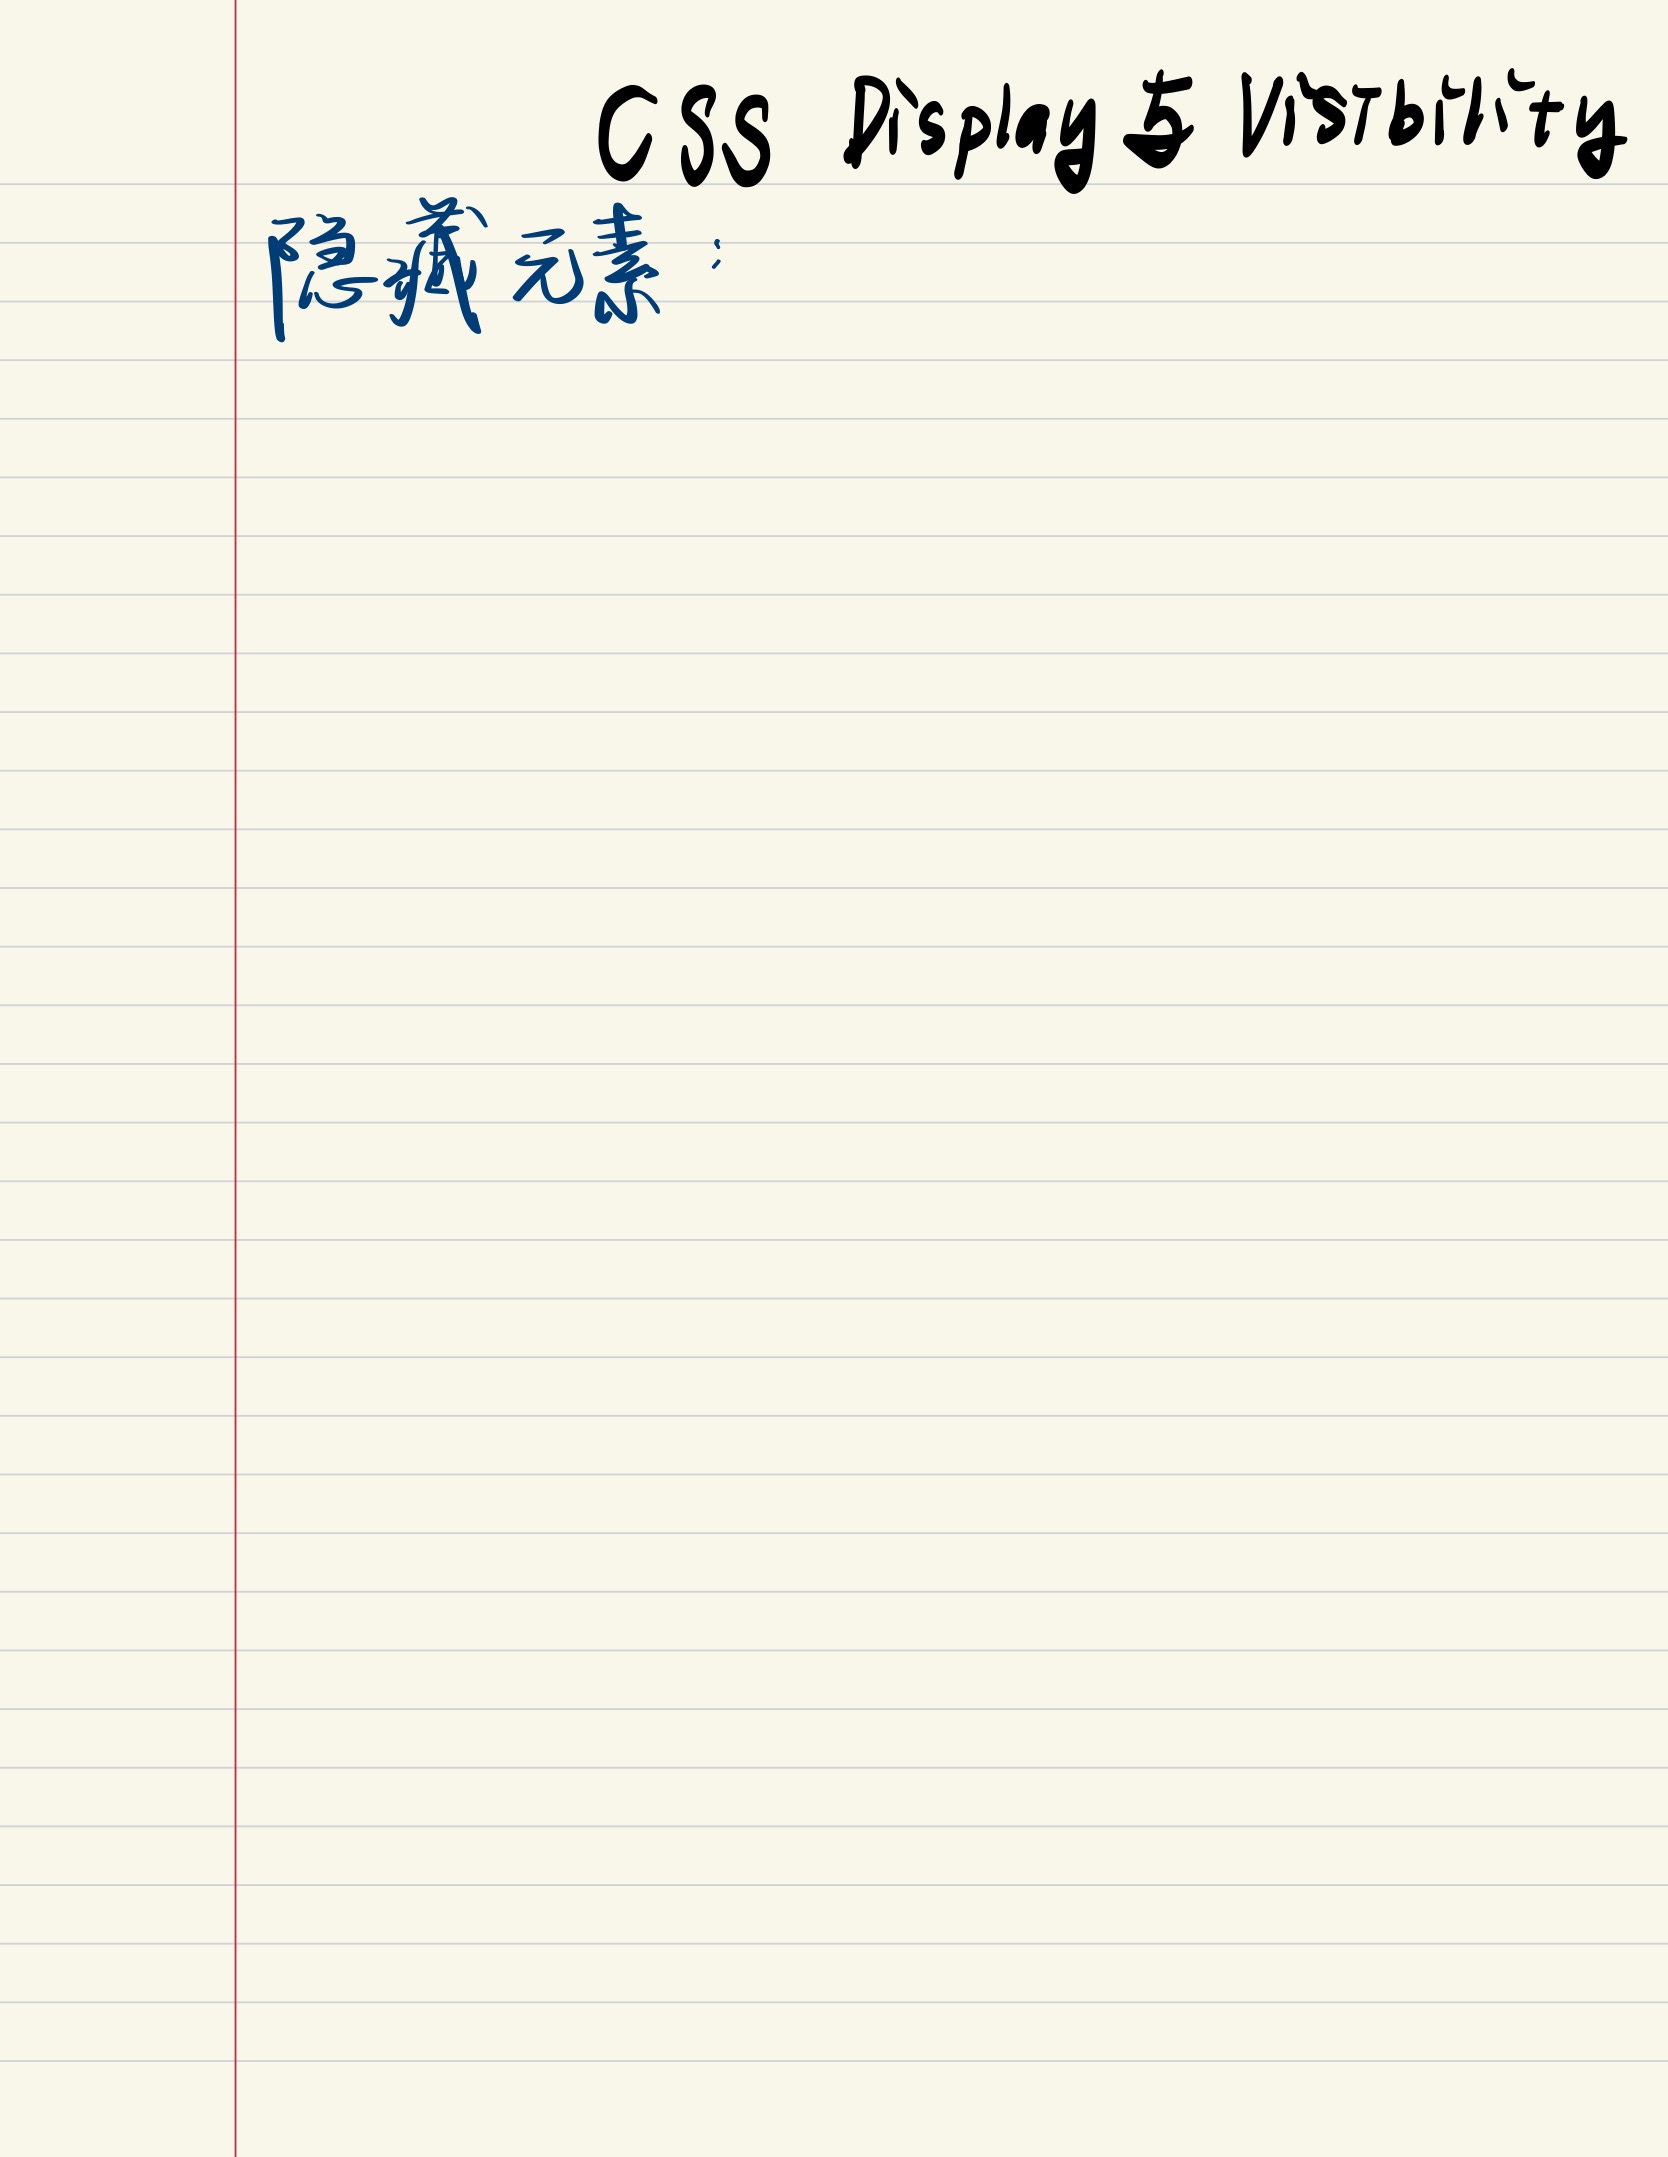 CSS Display 与 Visibility
隐藏元素：